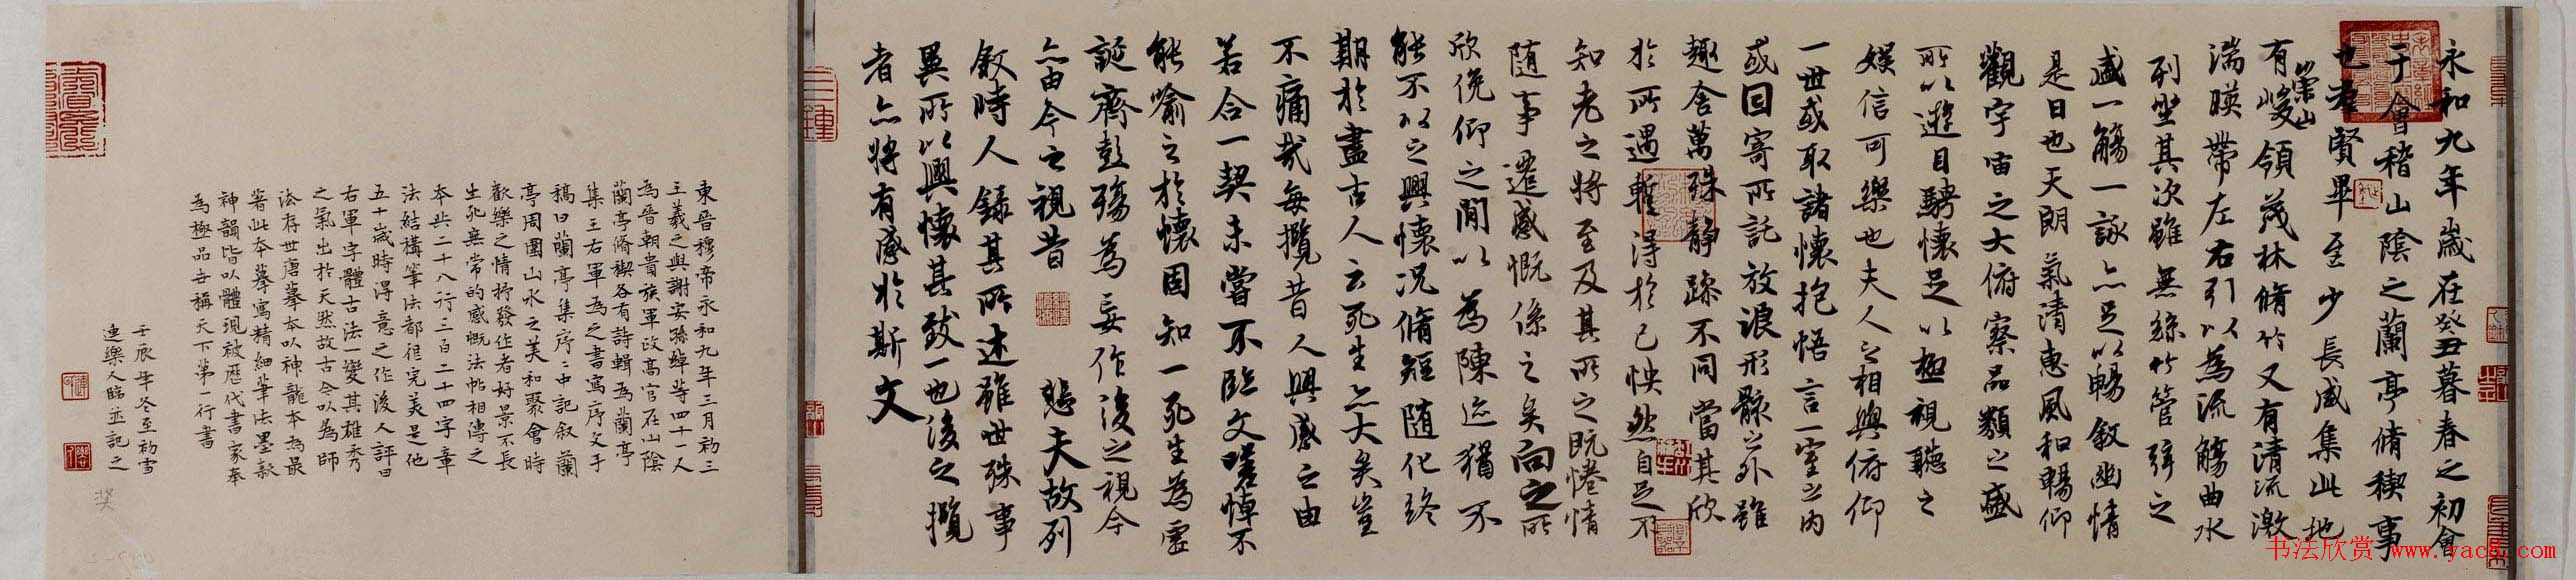 永和九年歲在癸丑暮春之初會
于會稽山陰之蘭亭脩稧事
也羣賢畢至少長咸集此地
有崇山峻領茂林脩竹又有清流激
湍暎帶左右引以為流觴曲水
列坐其次雖無絲竹管弦之
盛一觴一詠亦足以暢敘幽情
是日也天朗氣清惠風和暢仰
觀宇宙之大俯察品類之盛
所以遊目騁懷足以極視聽之
娛信可樂也夫人之相與俯仰
一世或取諸懷抱悟言一室之內
或因寄所託放浪形骸之外雖
趣舍萬殊靜躁不同當其欣
於所遇暫得於己怏然自足不
知老之將至及其所之既惓情
隨事遷感慨係之矣向之所
欣俛仰之閒以為陳迹猶不
能不以之興懷況脩短隨化終
期於盡古人云死生亦大矣豈
不痛哉每攬昔人興感之由
若合一契未嘗不臨文嗟悼不
能喻之於懷固知一死生為虛
誕齊彭殤為妄作後之視今
亦由今之視昔 悲夫故列
敘時人錄其所述雖世殊事
異所以興懷其致一也後之攬
者亦將有感於斯文
東晉穆帝永和九年三月初三
王羲之與謝安孫綽等四十一人
為晉朝貴族軍政高官在山陰
蘭亭脩稧各有詩輯為蘭亭
集王右軍為之書寫序文手
稿曰蘭亭集序序中記敘蘭
亭周圍山水之美和聚會時
歡樂之情抒發作者好景不長
生死無常的感慨法帖相傳之
本共二十八行三百二十四字章
法結構筆法都很完美是他
五十歲時得意之作後人評曰
右軍字體古法一變其雄秀
之氣出於天然故古今以為師
法存世唐摹本以神龍本為最
著此本摹寫精細筆法墨氣
神韻皆以體現被歷代書家奉
為極品世稱天下第一行書
壬辰年冬至初雪
達樂人臨並記之
奖
书法欣赏 www.yac8.com